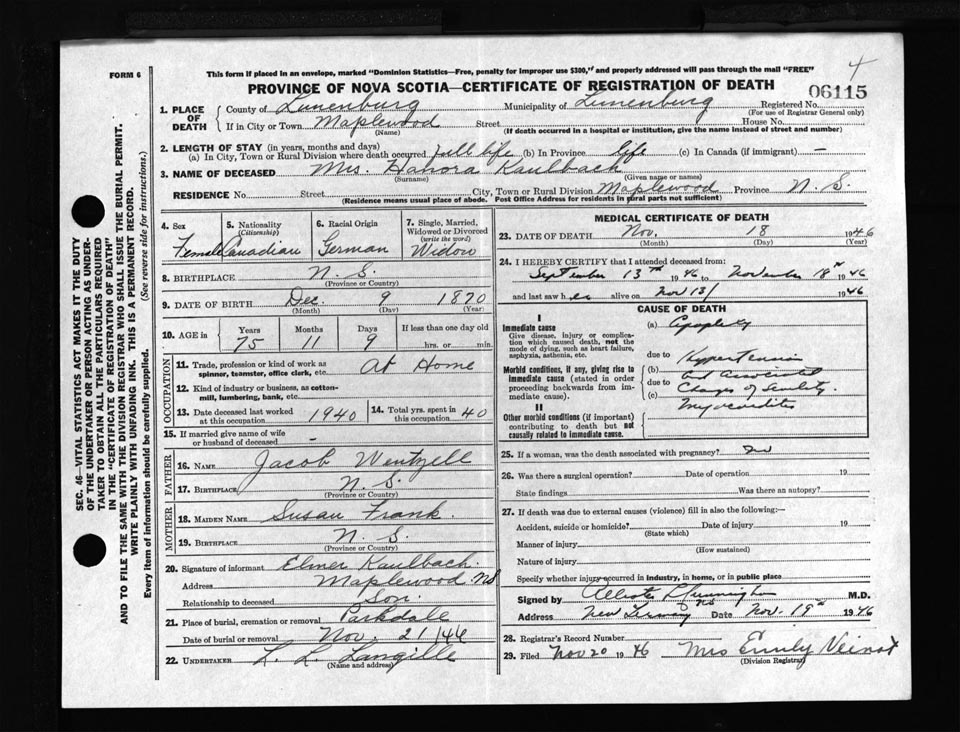 FORM 6
This form if placed in an envelope, marked "Dominion Statistics—Free, penalty for improper use $300," and properly addressed will pass through the mail "FREE"
4
PROVINCE OF NOVA SCOTIA—CERTIFICATE OF REGISTRATION OF DEATH
06115
1. PLACE OF DEATH
County of Lunenburg Municipality of Lunenburg Registered No.
(For use of Registrar General only)
If in City or Town Maplewood Street House No.
(Name) (If death occurred in a hospital or institution, give the name instead of street and number)
2. LENGTH OF STAY (in years, months and days)
(a) In City, Town or Rural Division where death occurred full life (b) In Province life (c) In Canada (if immigrant) —
3. NAME OF DECEASED Mrs. Hanora Kaulback
(Surname) (Given name or names)
RESIDENCE No. Street City, Town or Rural Division Maplewood Province N. S.
(Residence means usual place of abode. Post Office Address for residents in rural parts not sufficient)
4. Sex
Female
5. Nationality
(Citizenship)
Canadian
6. Racial Origin
German
7. Single, Married, Widowed or Divorced
(write the word)
Widow
8. BIRTHPLACE N. S.
(Province or Country)
9. DATE OF BIRTH Dec. 9 1870
(Month) (Day) (Year)
10. AGE in
Years Months Days If less than one day old
75 11 9 hrs. or min.
OCCUPATION
11. Trade, profession or kind of work as spinner, teamster, office clerk, etc. At Home
12. Kind of industry or business, as cotton-mill, lumbering, bank, etc.
13. Date deceased last worked at this occupation 1940
14. Total yrs. spent in this occupation 40
15. If married give name of wife or husband of deceased -
FATHER
16. NAME Jacob Wentzell
17. BIRTHPLACE N. S.
(Province or Country)
MOTHER
18. MAIDEN NAME Susan Frank.
19. BIRTHPLACE N. S.
(Province or Country)
20. Signature of informant Elmer Kaulback.
Address Maplewood NS
Relationship to deceased Son.
21. Place of burial, cremation or removal Parkdale
Date of burial or removal Nov. 21/46
22. UNDERTAKER L. L. Langille
(Name and address)
MEDICAL CERTIFICATE OF DEATH
23. DATE OF DEATH Nov. 18 1946
(Month) (Day) (Year)
24. I HEREBY CERTIFY that I attended deceased from:
September 13th 1946 to November 18th 1946
and last saw her alive on Nov 13/ 1946
CAUSE OF DEATH
I
Immediate cause
Give disease, injury or complication which caused death, not the mode of dying, such as heart failure, asphyxia, asthenia, etc.
Morbid conditions, if any, giving rise to immediate cause (stated in order proceeding backwards from immediate cause).
II
Other morbid conditions (if important) contributing to death but not causally related to immediate cause.
(a) Apoplexy
due to Hypertension
(b) and associated
due to Changes of Senility.
(c)
Myocarditis
25. If a woman, was the death associated with pregnancy? no
26. Was there a surgical operation? Date of operation 19
State findings Was there an autopsy?
27. If death was due to external causes (violence) fill in also the following:—
Accident, suicide or homicide? Date of injury 19
(State which)
Manner of injury
(How sustained)
Nature of injury
Specify whether injury occurred in industry, in home, or in public place
Signed by M.D.
Address New Germany NS Date Nov. 19th 1946
28. Registrar's Record Number
29. Filed Nov 20 1946 Mrs Emily Veinot
(Division Registrar)
SEC. 46—VITAL STATISTICS ACT MAKES IT THE DUTY
OF THE UNDERTAKER OR PERSON ACTING AS UNDER-
TAKER TO OBTAIN ALL THE PARTICULARS REQUIRED
IN THE "CERTIFICATE OF REGISTRATION OF DEATH"
AND TO FILE THE SAME WITH THE DIVISION REGISTRAR WHO SHALL ISSUE THE BURIAL PERMIT.
WRITE PLAINLY WITH UNFADING INK. THIS IS A PERMANENT RECORD.
Every item of information should be carefully supplied. (See reverse side for instructions.)